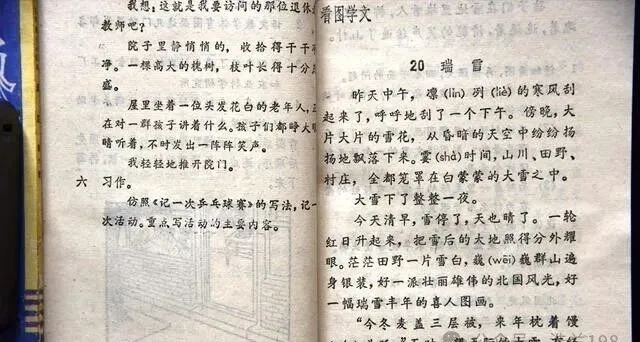 我想，这就是我要访问的那位退休
教师吧？
院子里静悄悄的，收拾得干干
净。一棵高大的槐树，枝叶长得十分
盛。
屋里坐着一位头发花白的老年人，
在对一群孩子讲着什么。孩子们都睁大
睛听着，不时发出一阵阵笑声。
我轻轻地推开院门。
六 习作。
仿照《记一次乒乓球赛》的写法，记一
次活动。重点写活动的主要内容。
看图学文
20 瑞雪
昨天中午，凛(lǐn)冽(liè)的寒风刮
起来了，呼呼地刮了一个下午。傍晚，大
片大片的雪花，从昏暗的天空中纷纷扬
扬地飘落下来。霎(shà)时间，山川、田野、
村庄，全都笼罩在白蒙蒙的大雪之中。
大雪下了整整一夜。
今天清早，雪停了，天也晴了。一轮
红日升起来，把雪后的大地照得分外耀
眼。茫茫田野一片雪白，巍(wēi)巍群山遍
身银装，好一派壮丽雄伟的北国风光，好
一幅瑞雪丰年的喜人图画。
“今冬麦盖三层被，来年枕着馒